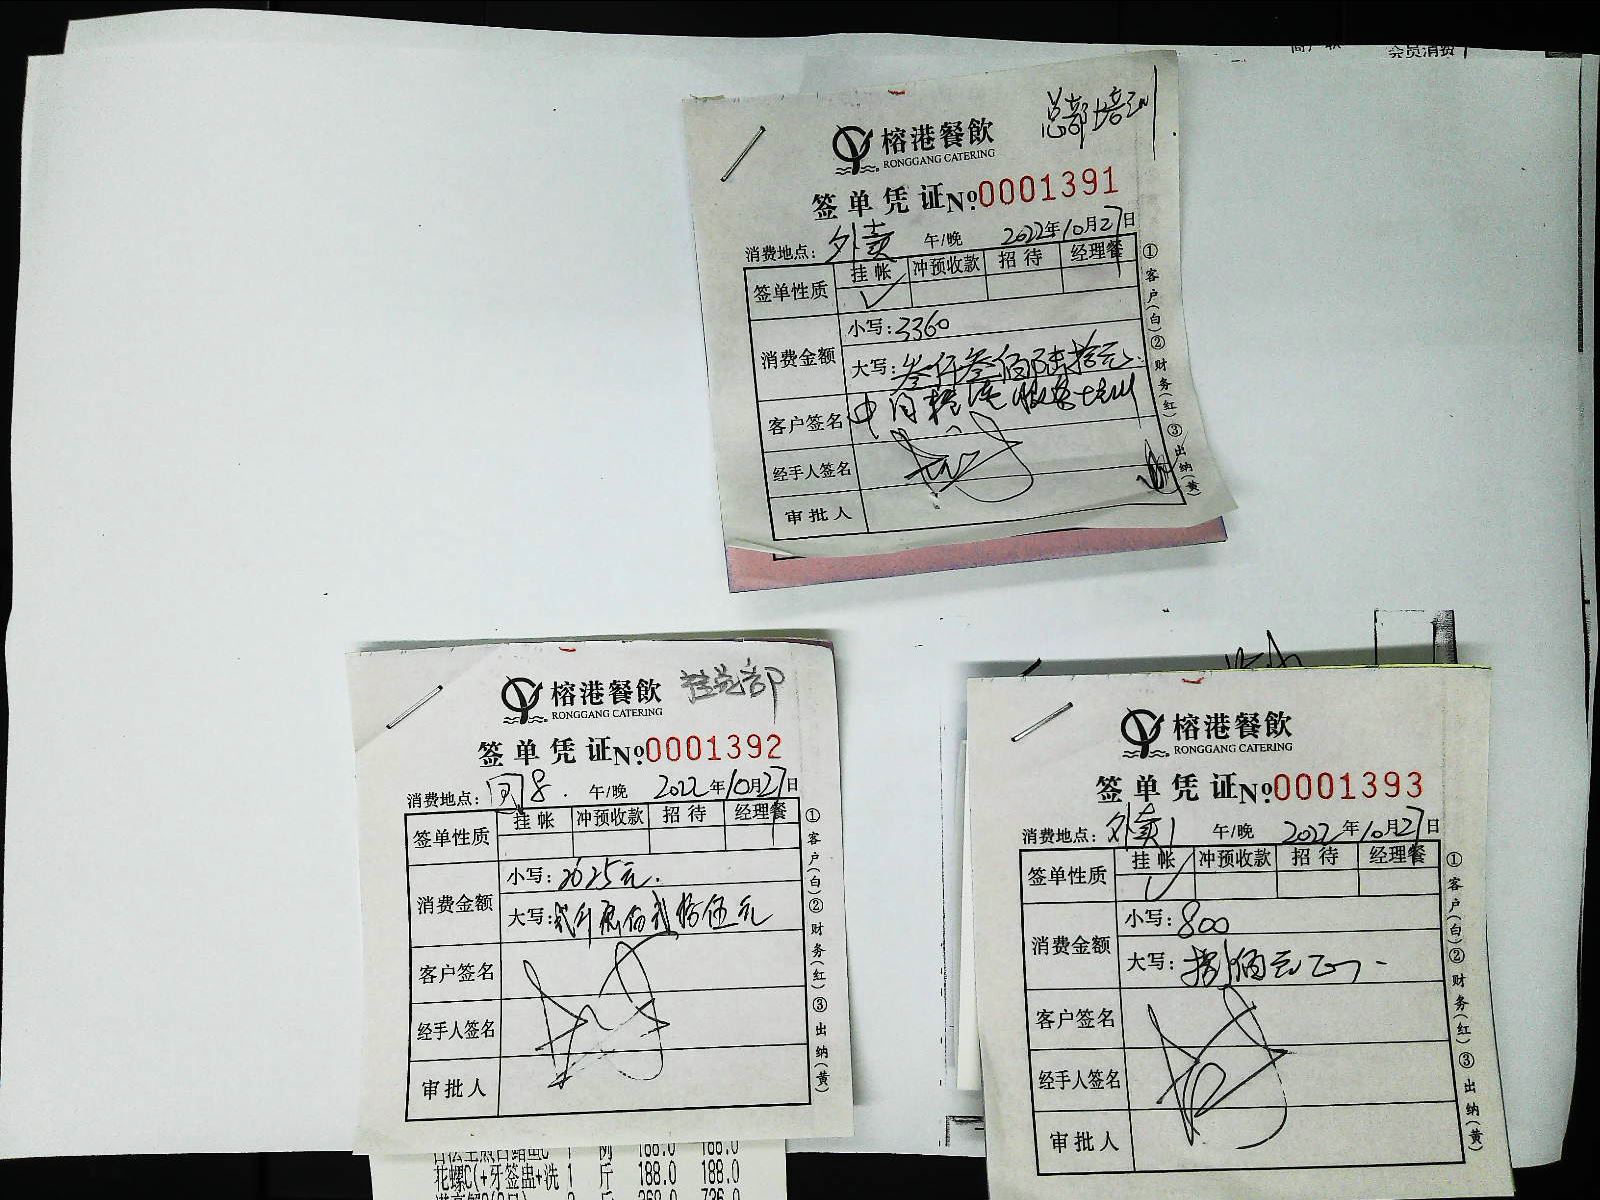 会员消费
总部培训
榕港餐飲
RONGGANG CATERING
签单凭证№0001391
消费地点：外卖 午/晚 2022年10月27日
签单性质 挂帐 冲预收款 招待 经理餐
✓
消费金额 小写：3360
大写：叁仟叁佰陆拾元
客户签名 中国
经手人签名
审批人
①客户(白)②财务(红)③出纳(黄)
榕港餐飲
RONGGANG CATERING
签单凭证№0001392
消费地点： 8. 午/晚 2022年10月27日
签单性质 挂帐 冲预收款 招待 经理餐
消费金额 小写：2625元.
大写：贰仟陆佰贰拾伍元
客户签名
经手人签名
审批人
①客户(白)②财务(红)③出纳(黄)
花螺C(+牙签盅+洗 1 斤 188.0 188.0
榕港餐飲
RONGGANG CATERING
签单凭证№0001393
消费地点：外卖1 午/晚 2022年10月27日
签单性质 挂帐 冲预收款 招待 经理餐
✓
消费金额 小写：800
大写：捌佰元正
客户签名
经手人签名
审批人
①客户(白)②财务(红)③出纳(黄)